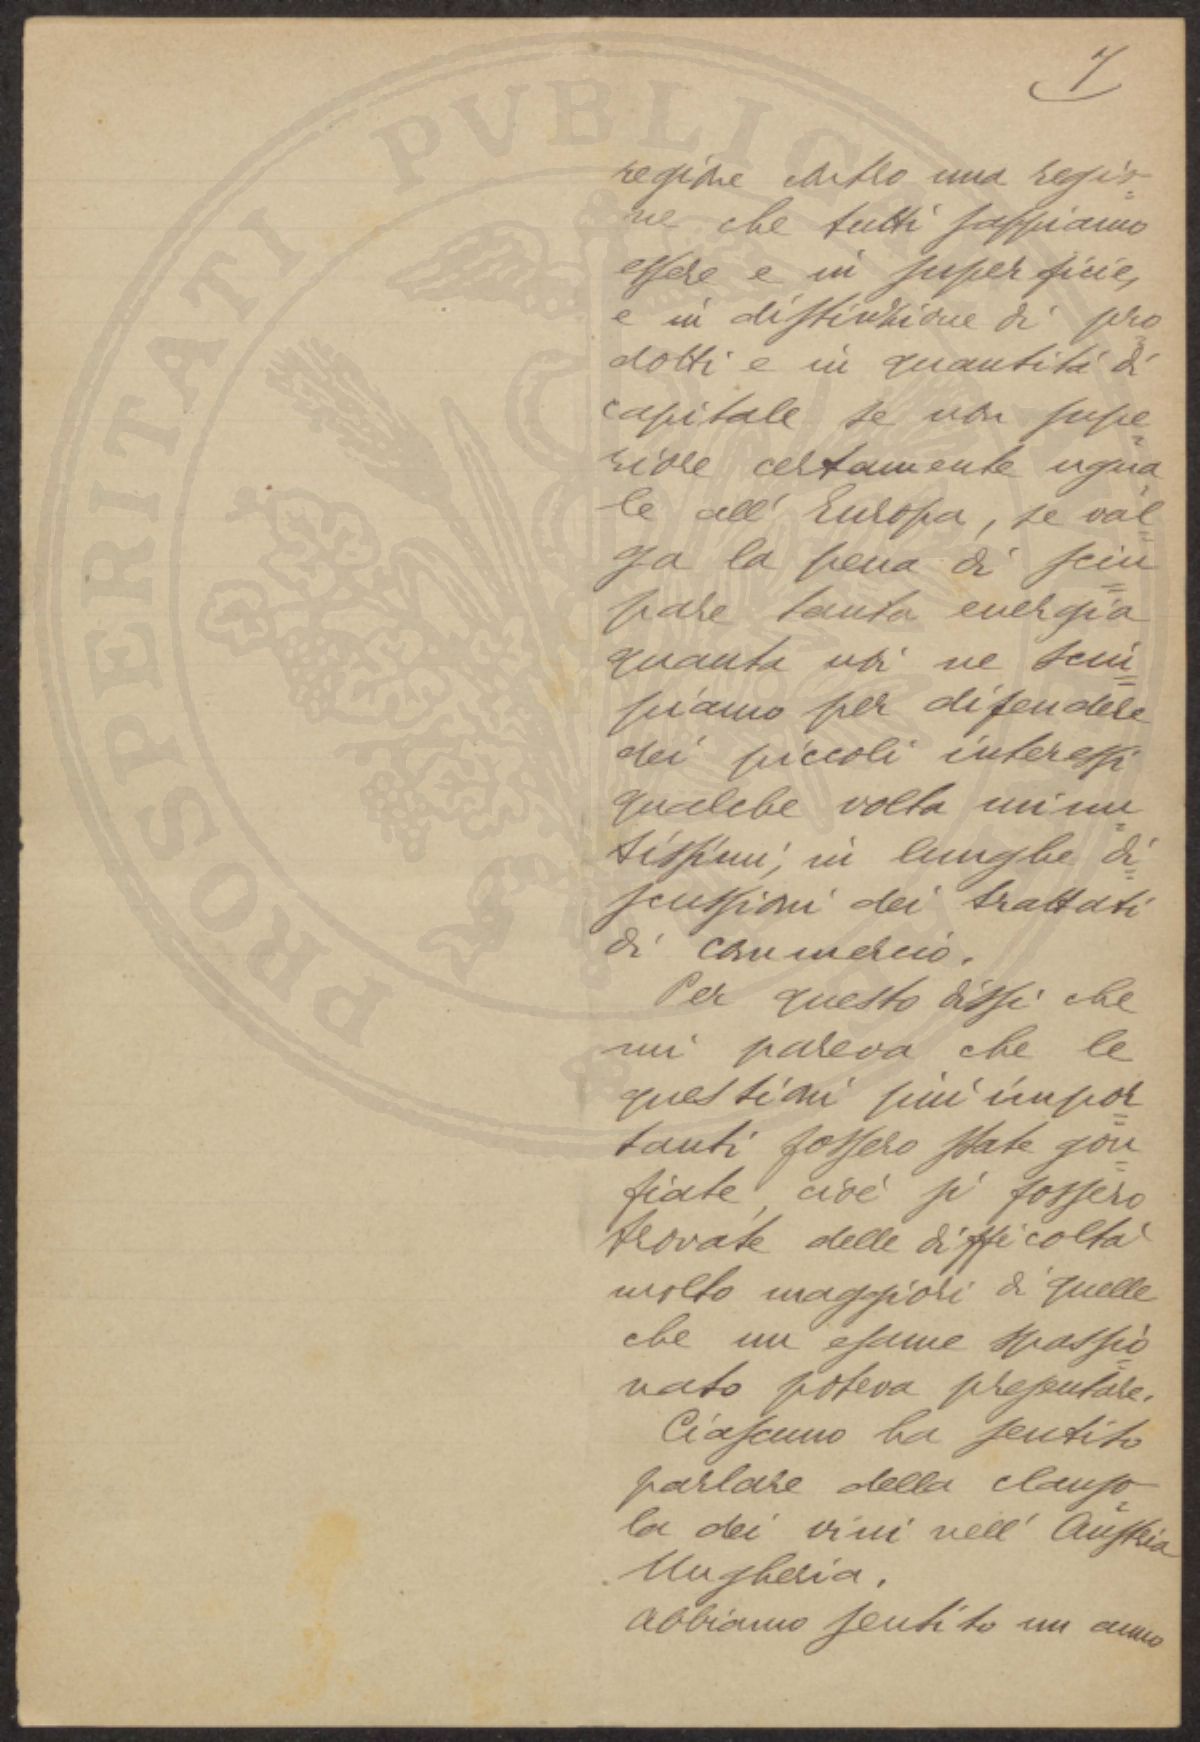 7
regione contro una regio=
ne che tutti sappiamo
essere e in superficie,
e in distinzione di pro=
dotti e in quantità di
capitale se non supe=
riore certamente ugua=
le all' Europa, se val=
ga la pena di sciu=
pare tanta energia
quanta noi ne sciu=
piamo per difendere
dei piccoli interessi
qualche volta minu=
tissimi, in lunghe di=
scussioni dei trattati
di commercio.
Per questo dissi che
mi pareva che le
questioni più impor=
tanti fossero state gon=
fiate, cioè si fossero
trovate delle difficoltà
molto maggiori di quelle
che un esame spassio=
nato poteva presentare.
Ciascuno ha sentito
parlare della clauso=
la dei vini nell' Austria
Ungheria.
Abbiamo sentito un anno
PROSPERITATI PVBLIC